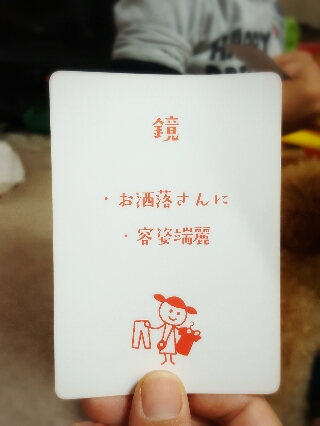 鏡
・お洒落さんに
・容姿端麗
HAPPY